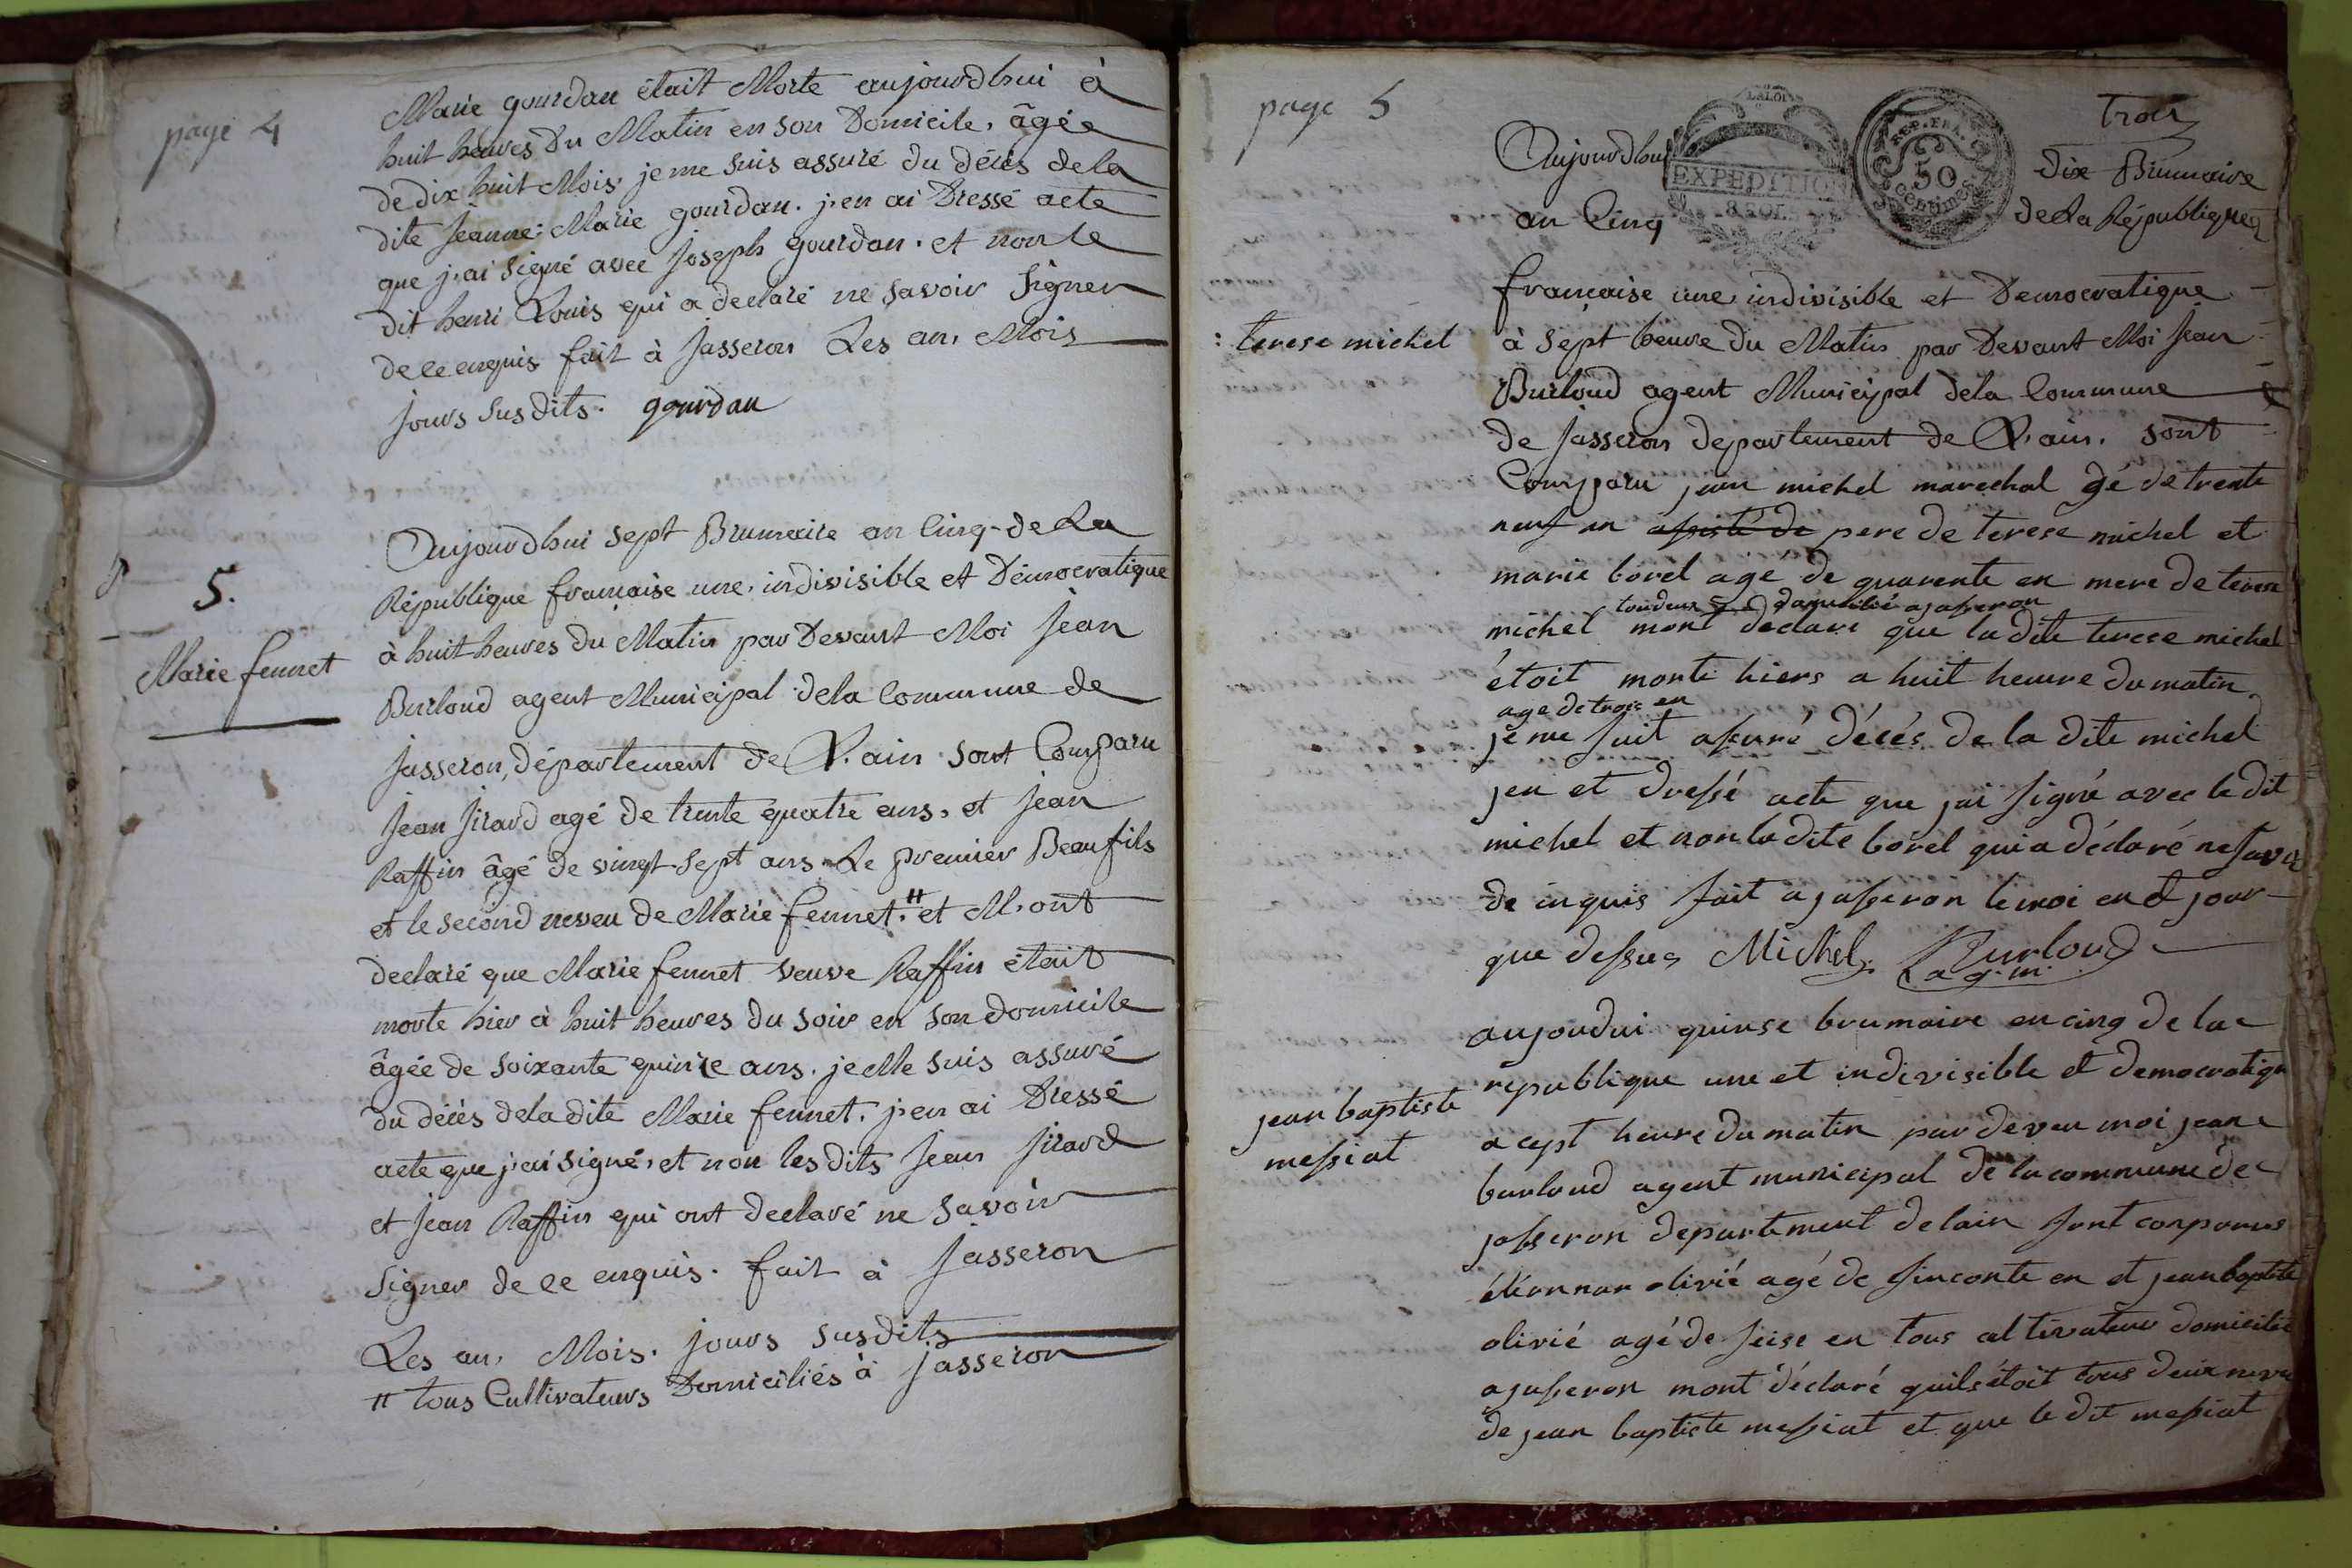 page 4
Marie gourdan était Morte aujourdhui à
huit heures du Matin en son Domicile, âgée
de dix huit Mois. je me suis assuré du décès de la
dite Jeanne: Marie gourdan. j'en ai Dressé acte
que j'ai signé avec Joseph gourdan. et non le
dit henri Louis qui a declaré ne savoir signer
de ce enquis. fait à Jasseron Les an, Mois
jours susdits. gourdan
5.
Marie fennet
Aujourdhui sept Brumaire an Cinq de La
République française une, indivisible et Démocratique
à huit heures du Matin par Devant Moi Jean
Burloud agent Municipal de la Commune de
Jasseron, département de L'ain sont Comparu
Jean Jirard agé de trente quatre ans, et Jean
Raffin âgé de vingt-sept ans. Le premier Beaufils
et le second neveu de Marie fennet. # et M'ont
declaré que Marie fennet veuve Raffin était
morte hier à huit heures du soir en son domicile
âgée de soixante quinze ans. je Me suis assuré
du décès de la dite Marie fennet. j'en ai Dressé
acte que j'ai signé, et non les dits Jean Jirard
et Jean Raffin qui ont declaré ne savoir
signer de ce enquis. fait à Jasseron
Les an, Mois. jours susdits
# tous Cultivateurs Domiciliés à Jasseron
page 5
LA LOI
EXPEDITION
8 SOLS
REP. FRA.
50
centimes
trois
Aujourdhui dix Brumaire
an Cinq de La République
française une, indivisible et Democratique
: terese michel
à sept heure du Matin par Devant Moi Jean
Burloud agent Municipal de la Commune
de Jasseron departement de L'ain. sont
Comparu jean michel marechal gé de trente
neuf an assisté de pere de terese michel et
marie borel agé de quarente en mere de terese
tou deux domicilié a jasseron
michel mont declaré que la dite terese michel
étoit morte hiers a huit heure du matin
age de trois en
je me suit assuré décés de la dite michel
jen et dressé acte que jai signé avec le dit
michel et non la dite borel qui a déclaré ne savoir
de inquis fait a jasseron le moi en et jour
que dessus Michel Burloud
ag. m.
jean baptiste
messiat
aujoudui quinse brumaire en cinq de la
republique une et indivisible et democratiqu
a cept heure du matin par deven moi jean
burloud agent municipal de la commune de
jasseron departement de lain sont comparus
étiennar olivié agé de sinconte en et jean baptiste
olivié agé de seise en tous cultivateur domicilié
a jasseron mont déclaré quils étoit tous deux neveu
de jean baptiste messiat et que le dit messiat